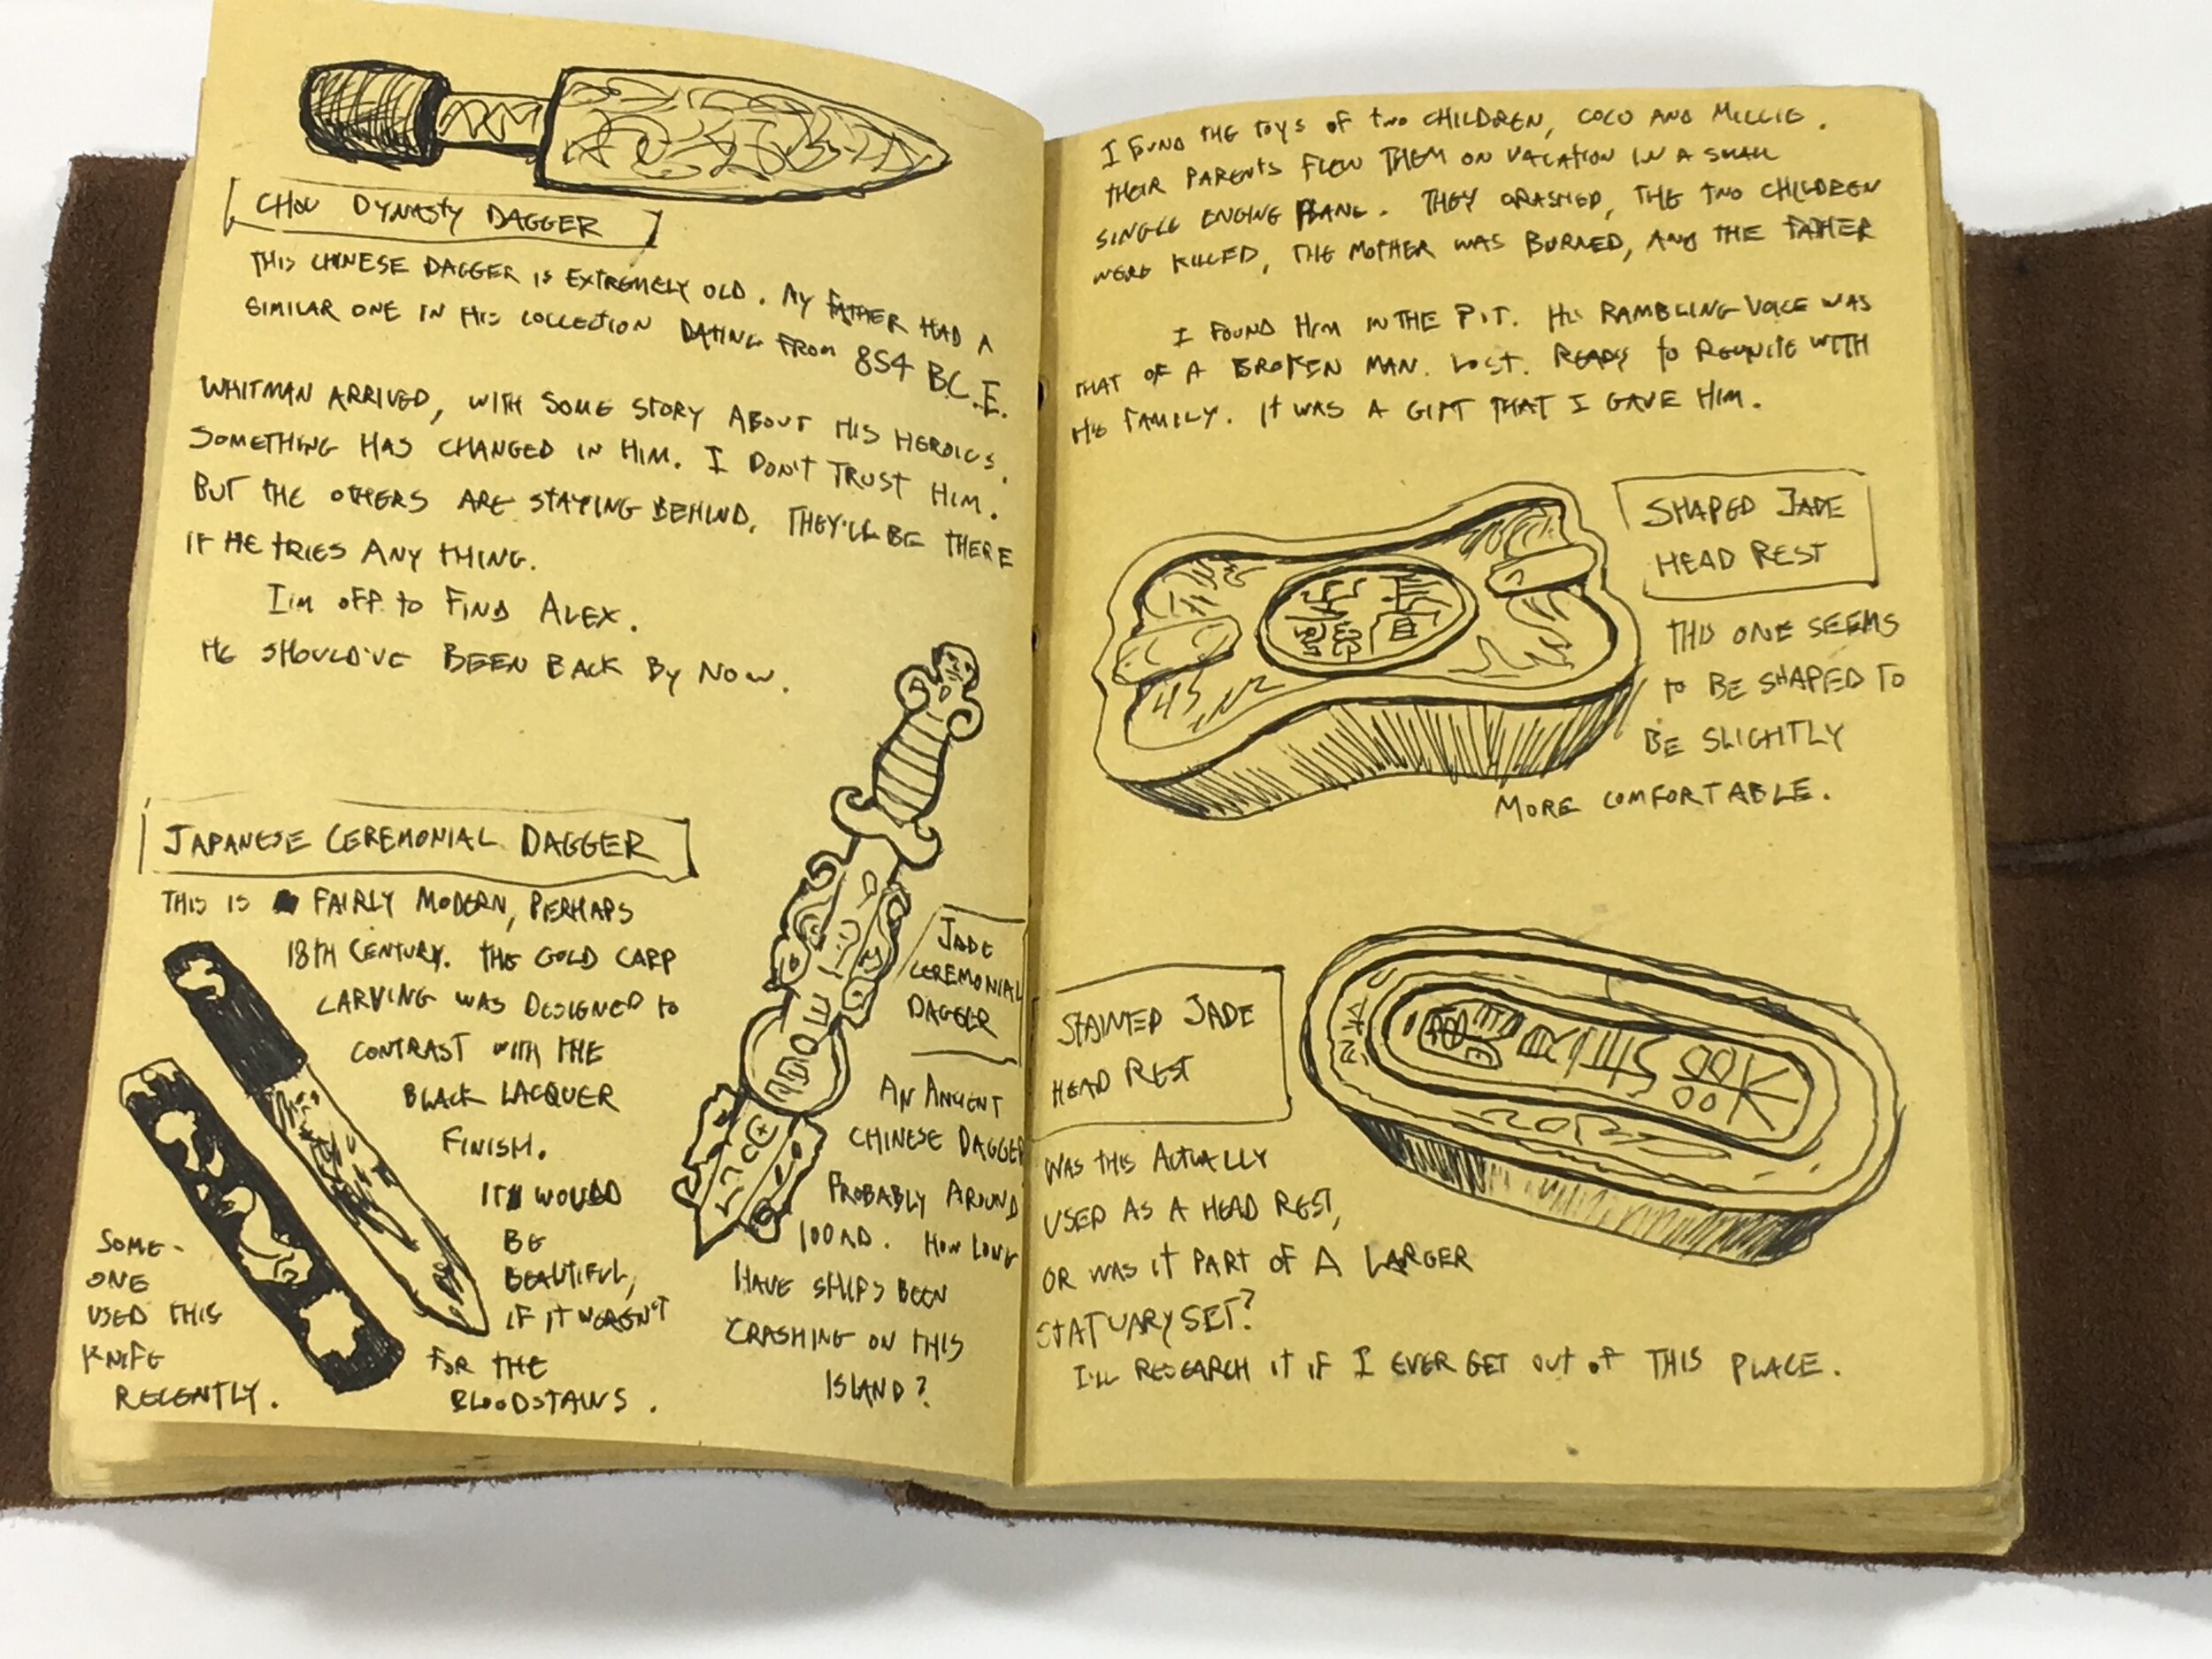 CHOU DYNASTY DAGGER
THIS CHINESE DAGGER IS EXTREMELY OLD. MY FATHER HAD A
SIMILAR ONE IN HIS COLLECTION DATING FROM 854 B.C.E.
WHITMAN ARRIVED, WITH SOME STORY ABOUT HIS HEROICS.
SOMETHING HAS CHANGED IN HIM. I DON'T TRUST HIM.
BUT THE OTHERS ARE STAYING BEHIND, THEY'LL BE THERE
IF HE TRIES ANY THING.
I'M OFF TO FIND ALEX.
HE SHOULD'VE BEEN BACK BY NOW.
JAPANESE CEREMONIAL DAGGER
THIS IS FAIRLY MODERN, PERHAPS
18TH CENTURY. THE GOLD CARP
CARVING WAS DESIGNED TO
CONTRAST WITH THE
BLACK LACQUER
FINISM.
IT WOULD
BE
BEAUTIFUL,
IF IT WEREN'T
FOR THE
BLOODSTAINS.
SOME-
ONE
USED THIS
KNIFE
RECENTLY.
JADE
CEREMONIAL
DAGGER
AN ANCIENT
CHINESE DAGGER
PROBABLY AROUND
100AD. HOW LONG
HAVE SHIPS BEEN
CRASHING ON THIS
ISLAND?
I FOUND THE TOYS OF TWO CHILDREN, COCO AND MILLIE.
THEIR PARENTS FLEW THEM ON VACATION IN A SMALL
SINGLE ENGINE PLANE. THEY CRASHED, THE TWO CHILDREN
WERE KILLED, THE MOTHER WAS BURNED, AND THE FATHER
I FOUND HIM IN THE PIT. HIS RAMBLING VOICE WAS
THAT OF A BROKEN MAN. LOST. READY TO REUNITE WITH
HIS FAMILY. IT WAS A GIFT THAT I GAVE HIM.
SHAPED JADE
HEAD REST
THIS ONE SEEMS
TO BE SHAPED TO
BE SLIGHTLY
MORE COMFORTABLE.
STAINTED JADE
HEAD REST
WAS THIS ACTUALLY
USED AS A HEAD REST,
OR WAS IT PART OF A LARGER
STATUARY SET?
I'LL RESEARCH IT IF I EVER GET OUT OF THIS PLACE.